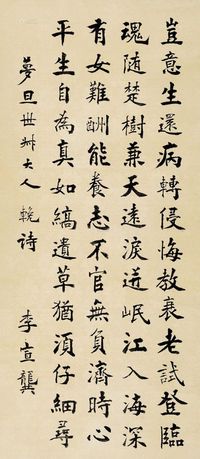 豈意生還病轉侵悔教衰老試登臨
魂随楚樹兼天遠淚迸岷江入海深
有女難酬能養志不官無負濟時心
平生自為真如縞遺草猶須仔細尋
夢旦世叔大人 輓詩
李宣龔